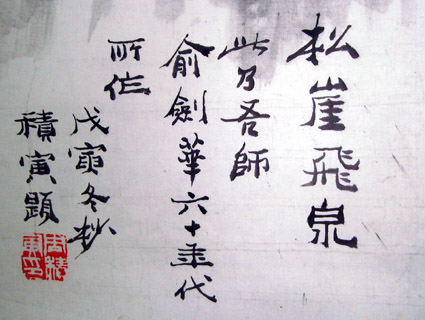 松崖飛泉
此乃吾師
俞劍華六十年代
所作
戊寅冬抄
積寅題
周積寅印